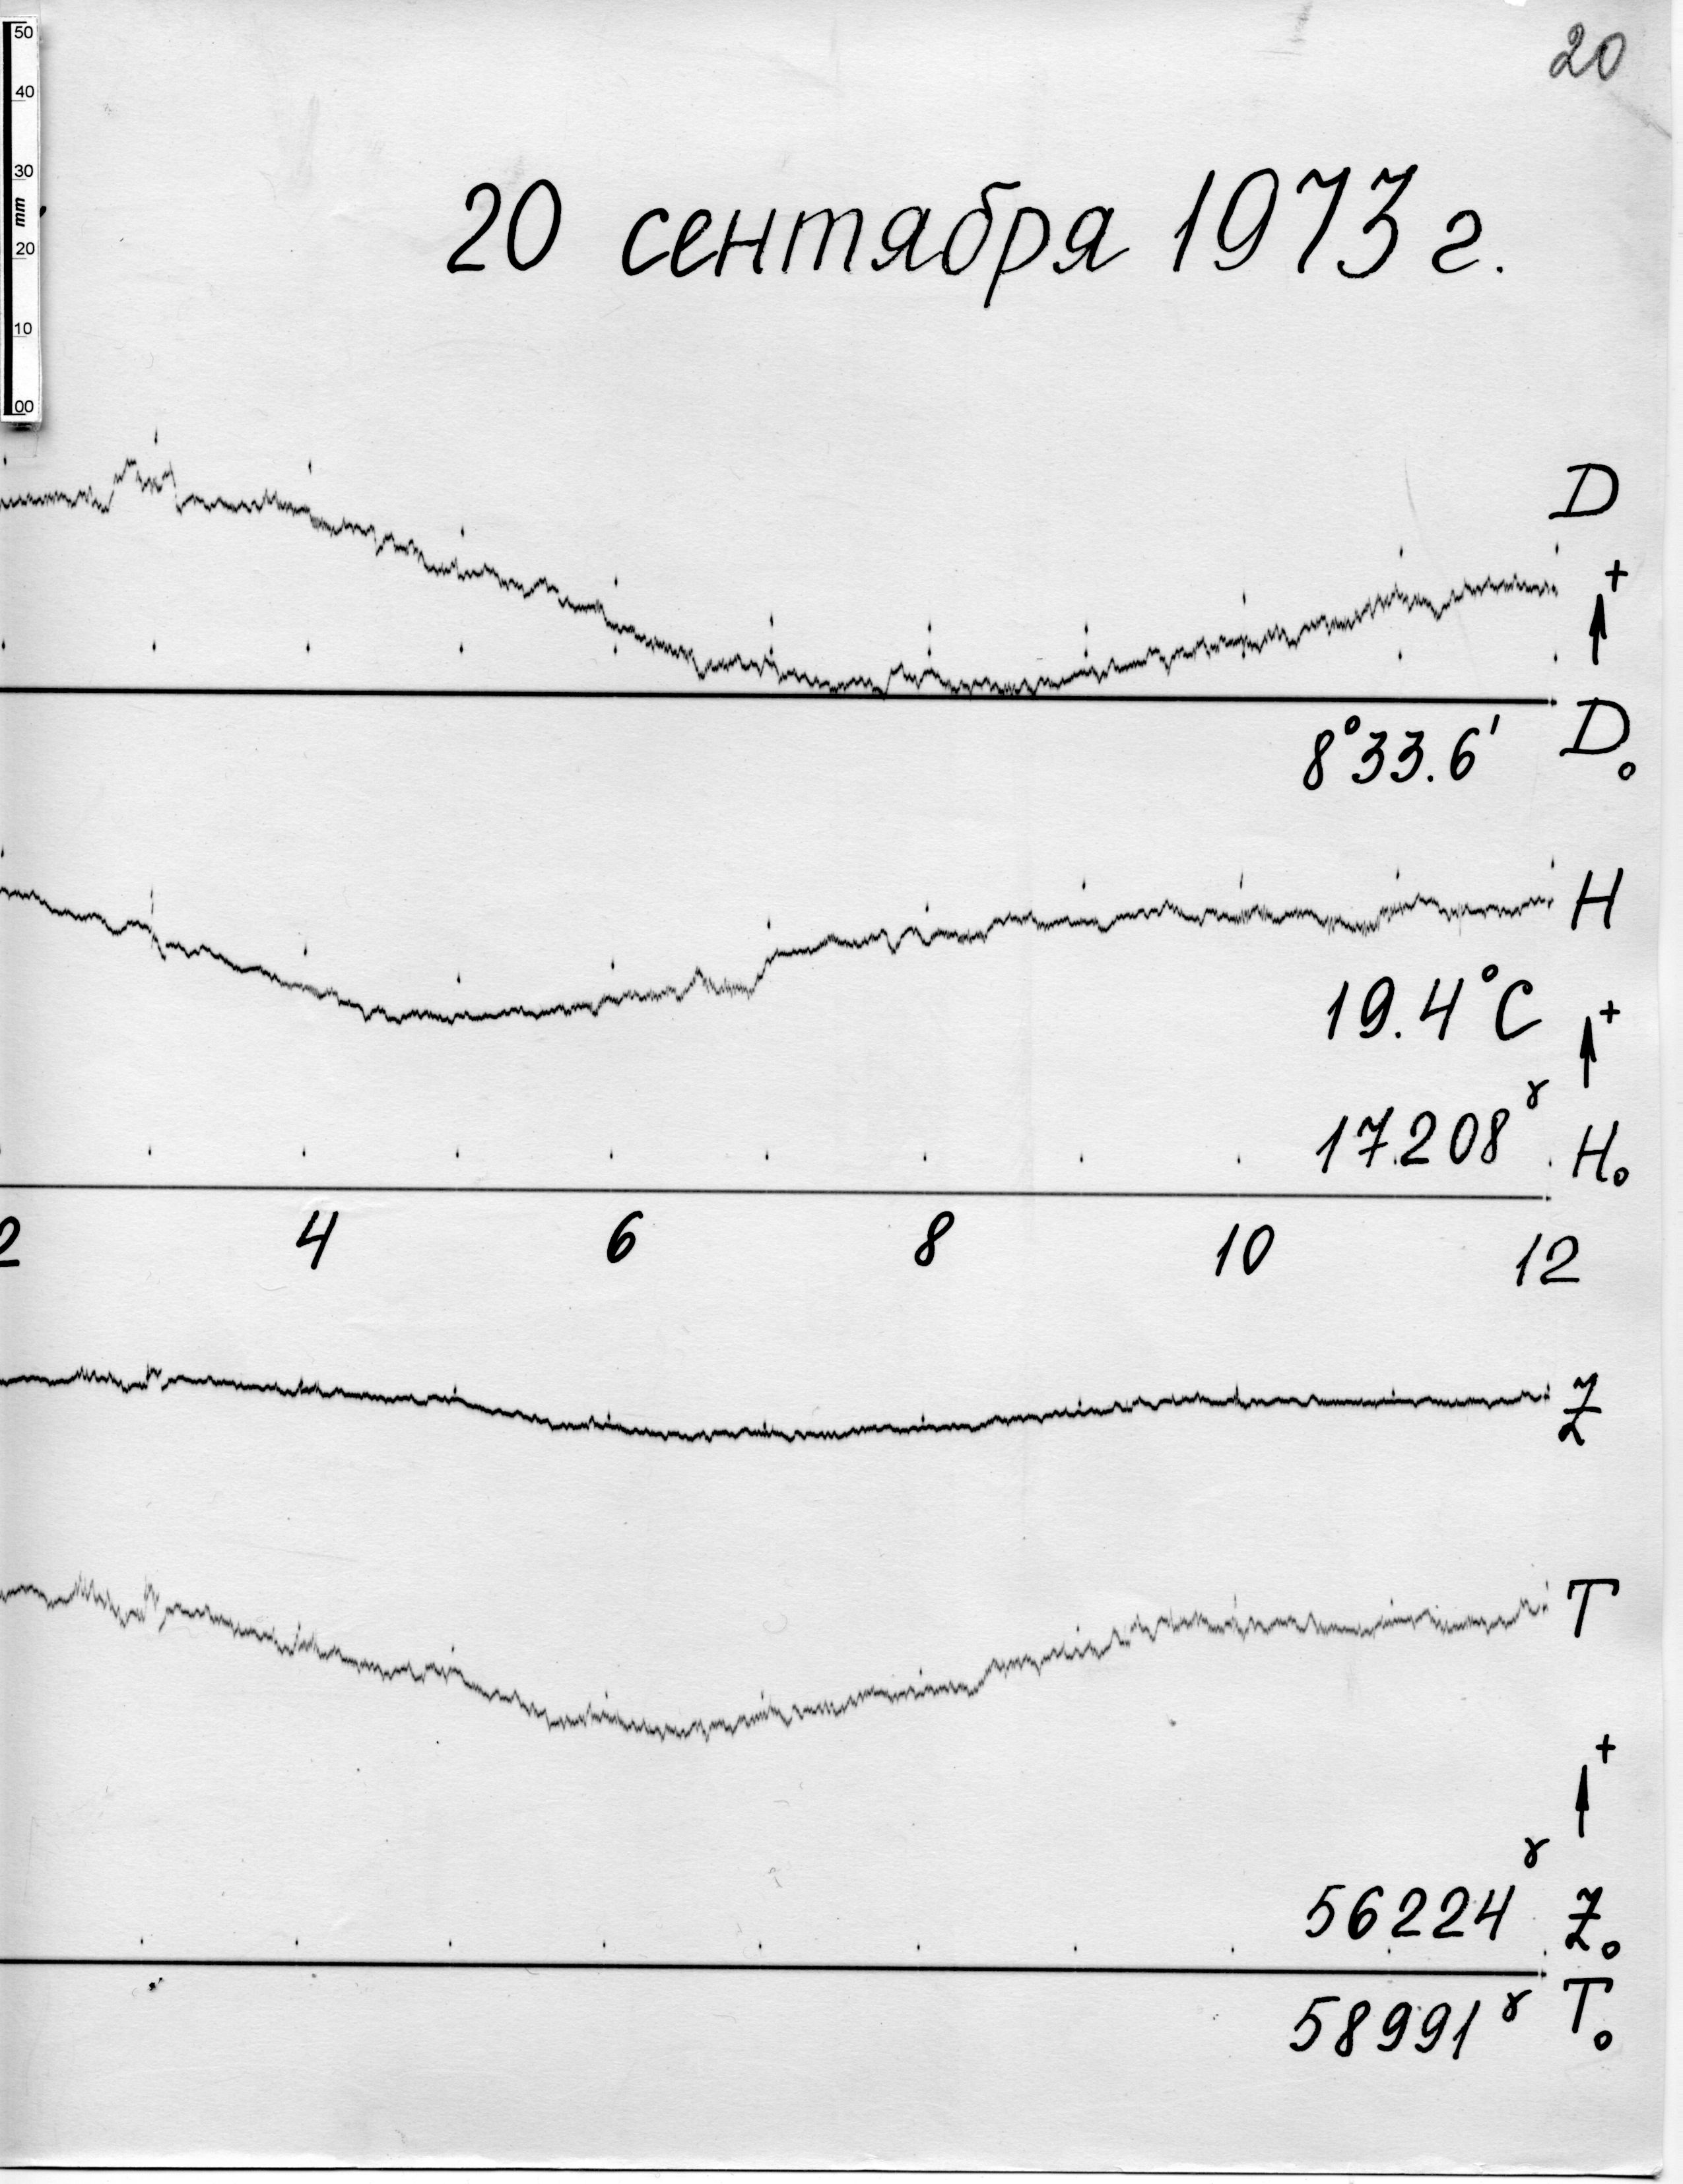 20
50
40
30
mm
20
10
00
20 сентября 1973 г.
D
+
8°33.6' D₀
H
19.4°C
+
17208ᵞ H₀
2 4 6 8 10 12
Z
T
+
56224ᵞ Z₀
58991ᵞ T₀